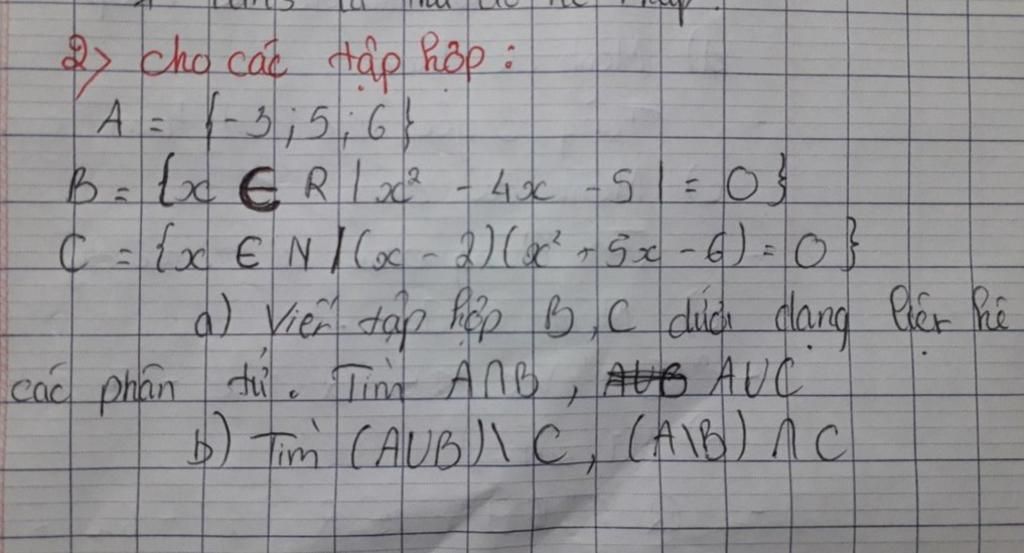 2> cho các tập hợp :
A = {-3 ; 5 ; 6}
B = {x ∈ R | x² - 4x - 5 | = 0}
C = {x ∈ N | (x - 2)(x² + 5x - 6) = 0}
a) Viết tập hợp B, C dưới dạng liệt kê
các phần tử. Tìm A∩B, A∪C
b) Tìm (A∪B)\ C, (A\B) ∩ C